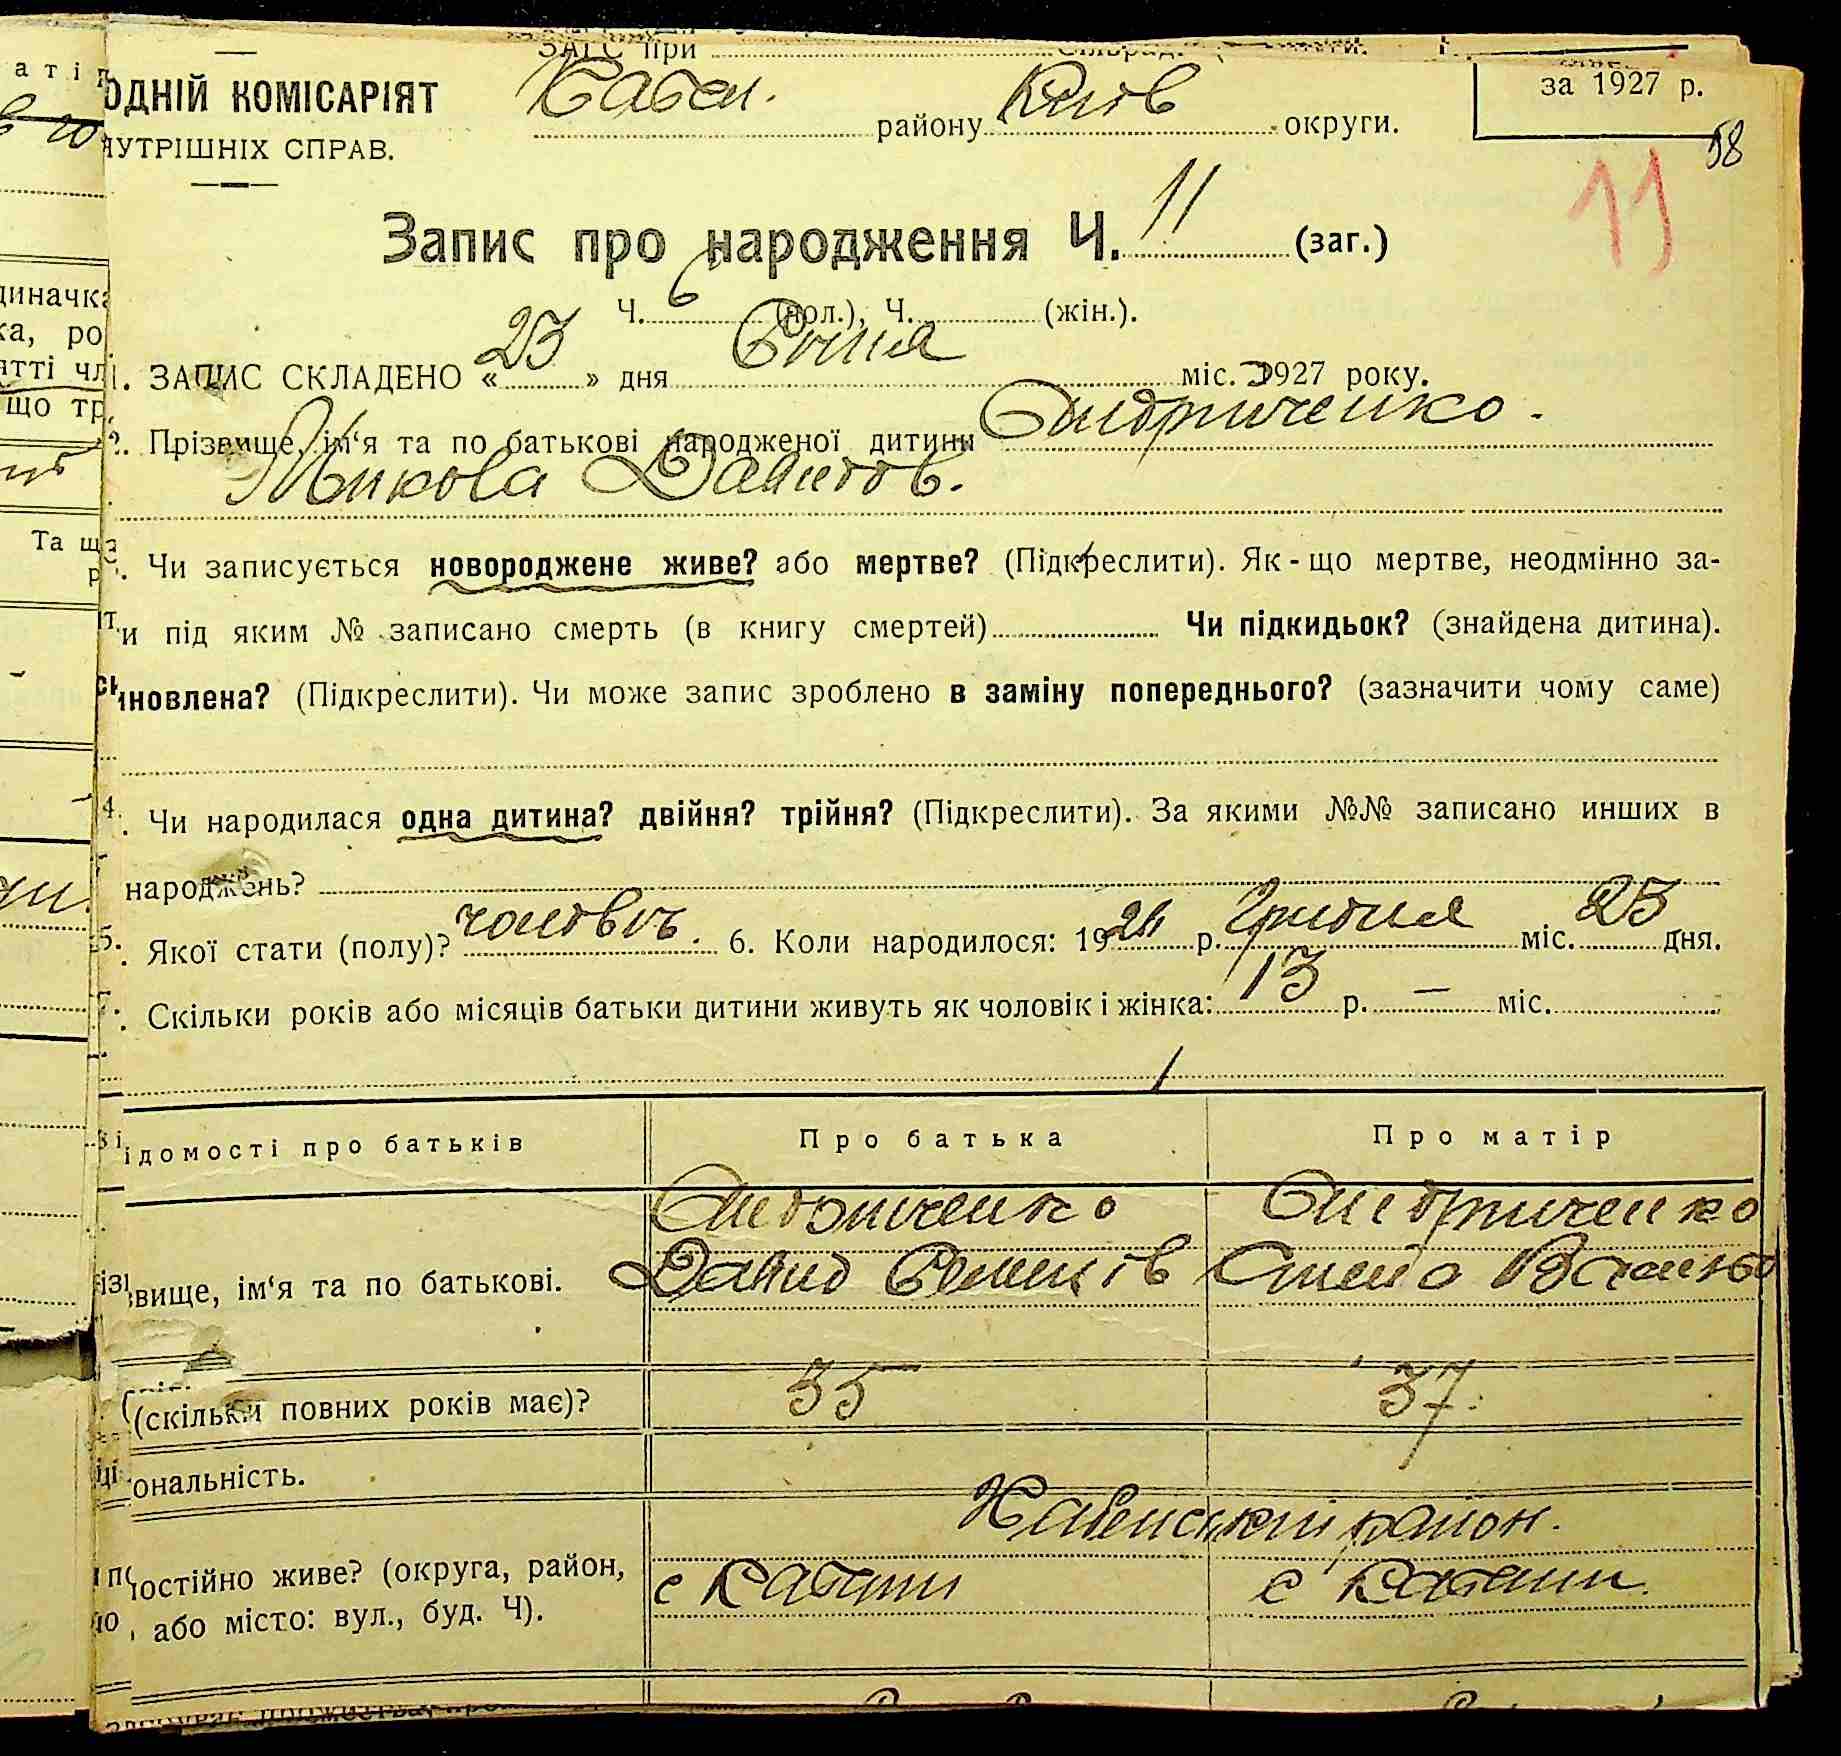 ЗАГС при
ОДНІЙ КОМІСАРІЯТ
НУТРІШНІХ СПРАВ.
району Київ округи.
за 1927 р.
58
11
Запис про народження Ч. 11 (заг.)
Ч. 6 (пол.), Ч. (жін.).
1. ЗАПИС СКЛАДЕНО « 23 » дня Січня міс. 1927 року.
2. Прізвище, ім‘я та по батькові народженої дитини Андриченко.
Микола Давидов.
Чи записується новороджене живе? або мертве? (Підкреслити). Як-що мертве, неодмінно за-
и під яким № записано смерть (в книгу смертей) Чи підкидьок? (знайдена дитина).
иновлена? (Підкреслити). Чи може запис зроблено в заміну попереднього? (зазначити чому саме)
4. Чи народилася одна дитина? двійня? трійня? (Підкреслити). За якими №№ записано инших в
народжень?
5. Якої стати (полу)? 6. Коли народилося: 19 р. Грудня міс. 25 дня.
Скільки років або місяців батьки дитини живуть як чоловік і жінка: 13 р. — міс.
ідомості про батьків Про батька Про матір
Андриченко Андриченко
звище, ім‘я та по батькові. Давид
35 37
(скільки повних років має)?
ональність.
район.
постійно живе? (округа, район, с с
або місто: вул., буд. Ч).